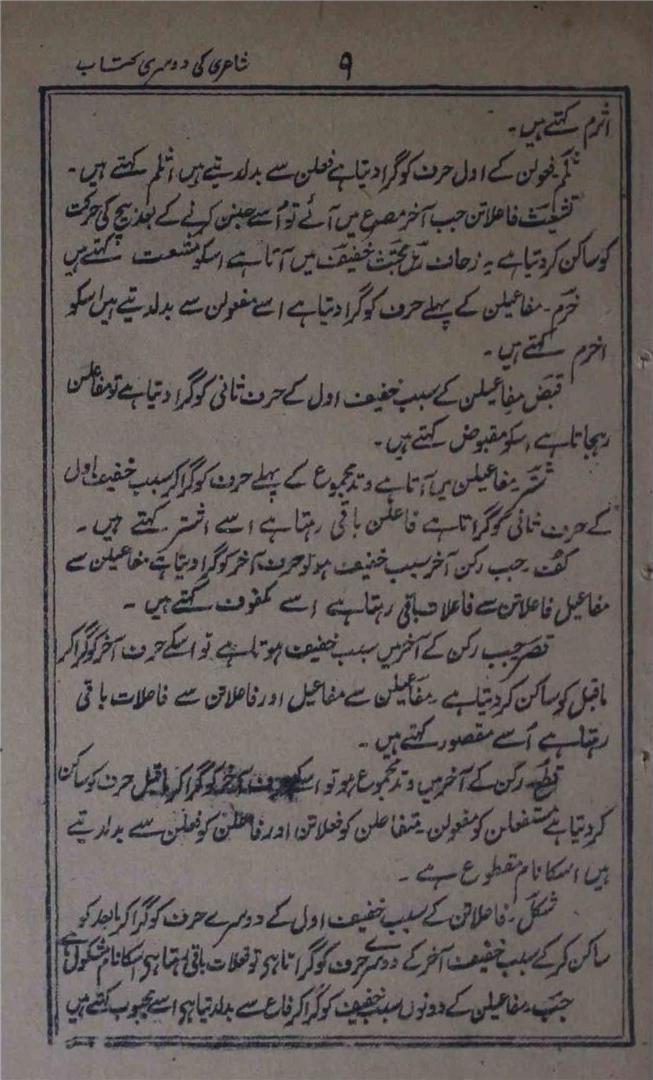 شاعری کی دوسری کتاب
۹
اثرم کہتے ہیں۔
ثلم۔ فعولن کے اول حرف کو گرا دیتا ہے فعلن سے بدلدیتے ہیں اثلم کہتے ہیں۔
تشعیث فاعلاتن جب آخر مصرع میں آئے تو اُسے خبن کرنے کے بعد بیچ کی حرکت
کو ساکن کر دیتا ہے یہ زحاف رمل مجتث خفیف میں آتا ہے اسکو مشعث کہتے ہیں
خرم۔ مفاعیلن کے پہلے حرف کو گرا دیتا ہے اسے مفعولن سے بدلدیتے ہیں اسکو
اخرم کہتے ہیں۔
قبض مفاعیلن کے سبب خفیف اول کے حرف ثانی کو گرا دیتا ہے تو مفاعلن
رہجاتا ہے اسکو مقبوض کہتے ہیں۔
شتر۔ مفاعیلن میں آتا ہے وتد مجموع کے پہلے حرف کو گرا کر سبب خفیف اول
کے حرف ثانی کو گراتا ہے فاعلن باقی رہتا ہے اسے اشتر کہتے ہیں۔
کف۔ جب رکن آخر سبب خفیف ہو تو حرف آخر کو گرا دیتا ہے مفاعیلن سے
مفاعیل فاعلاتن سے فاعلات باقی رہتا ہے اسے مکفوف کہتے ہیں۔
قصر جب رکن کے آخر میں سبب خفیف ہوتا ہے تو اسکے حرف آخر کو گرا کر
ماقبل کو ساکن کر دیتا ہے۔ مفاعیلن سے مفاعیل اور فاعلاتن سے فاعلات باقی
رہتا ہے اُسے مقصور کہتے ہیں۔
قطع۔ رکن کے آخر میں وتد مجموع ہو تو اسکے حرف آخر کو گرا کر ماقبل حرف کو ساکن
کر دیتا ہے مستفعلن کو مفعولن متفاعلن کو فعلاتن اور فاعلن کو فعلن سے بدلدیتے
ہیں اسکا نام مقطوع ہے۔
شکل۔ فاعلاتن کے سبب خفیف اول کے دوسرے حرف کو گرا کر مابعد کو
ساکن کر کے سبب خفیف آخر کے دوسرے حرف کو گراتا ہی تو فعلات باقی رہتا ہی اسکا نام مشکول ہے
جبب۔ مفاعیلن کے دونوں سبب خفیف کو گرا کر فاع سے بدلدیتا ہی اسے مجبوب کہتے ہیں